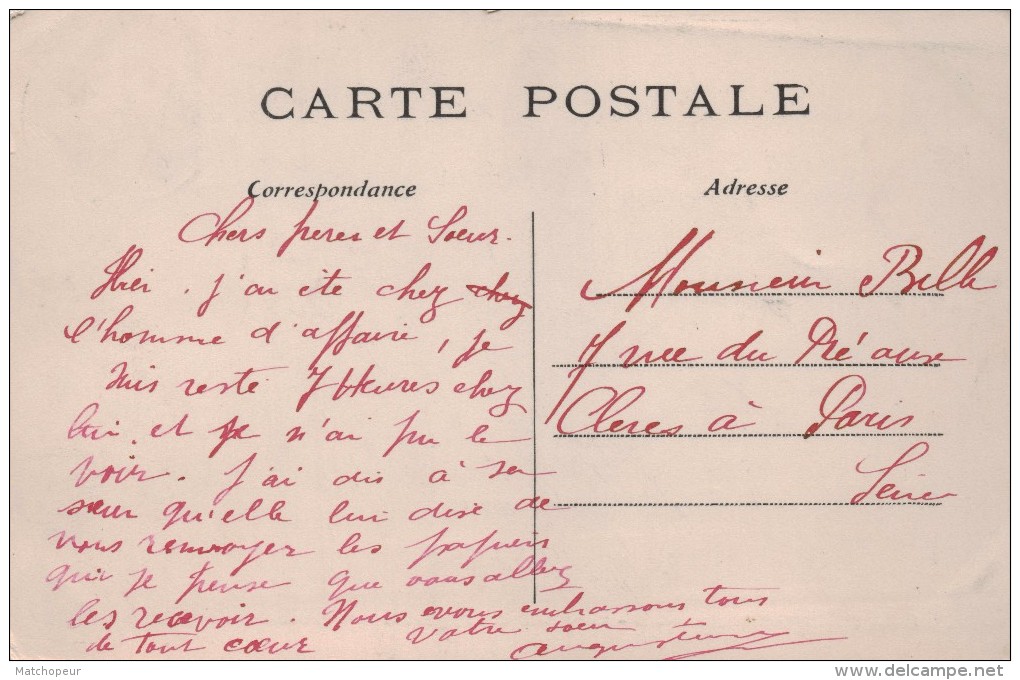 CARTE POSTALE
Correspondance
Chers freres et Soeur.
Hier. j'ai été chez chez
l'homme d'affaire, je
suis resté 7 heures chez
lui, et je n'ai pu le
voir. J'ai dis à sa
sœur qu'elle lui dise de
vous renvoyer les papiers
que je pense que vous allez
les recevoir. Nous vous embrassons tous
de tout cœur votre soeur
Augustine
Adresse
Monsieur Bille
7 rue du Pré aux
Clercs à Paris
Seine
Matchopeur
delcampe.net